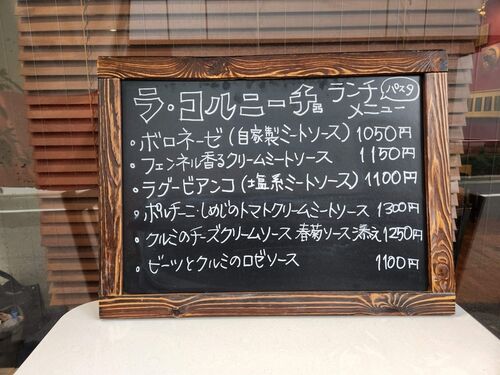 ラ・コルニーチェ ランチ パスタ
メニュー
・ボロネーゼ(自家製ミートソース) 1050円
・フェンネル香るクリームミートソース 1150円
・ラグービアンコ(塩系ミートソース) 1100円
・ポルチーニ・しめじのトマトクリームミートソース 1300円
・クルミのチーズクリームソース 春菊ソース添え 1250円
・ビーツとクルミのロゼソース 1100円